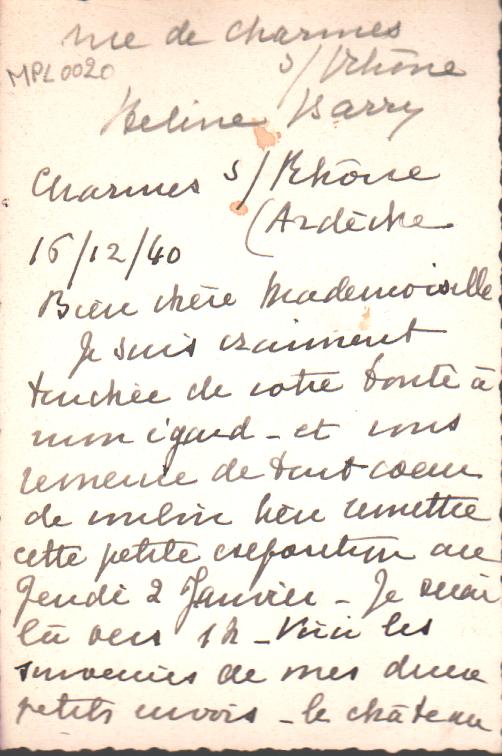 vue de Charmes
s/Rhône
MPL0020
Heline Barry
Charmes s/Rhône
(Ardèche
16/12/40
Bien chère Mademoiselle
Je suis vraiment
touchée de votre bonté à
mon égard - et vous
remercie de tout coeur
de vouloir bien remettre
cette petite exposition au
Jeudi 2 Janvier - Je serai
là vers 1h - Voici les
souvenirs de mes deux
petits envois - le château